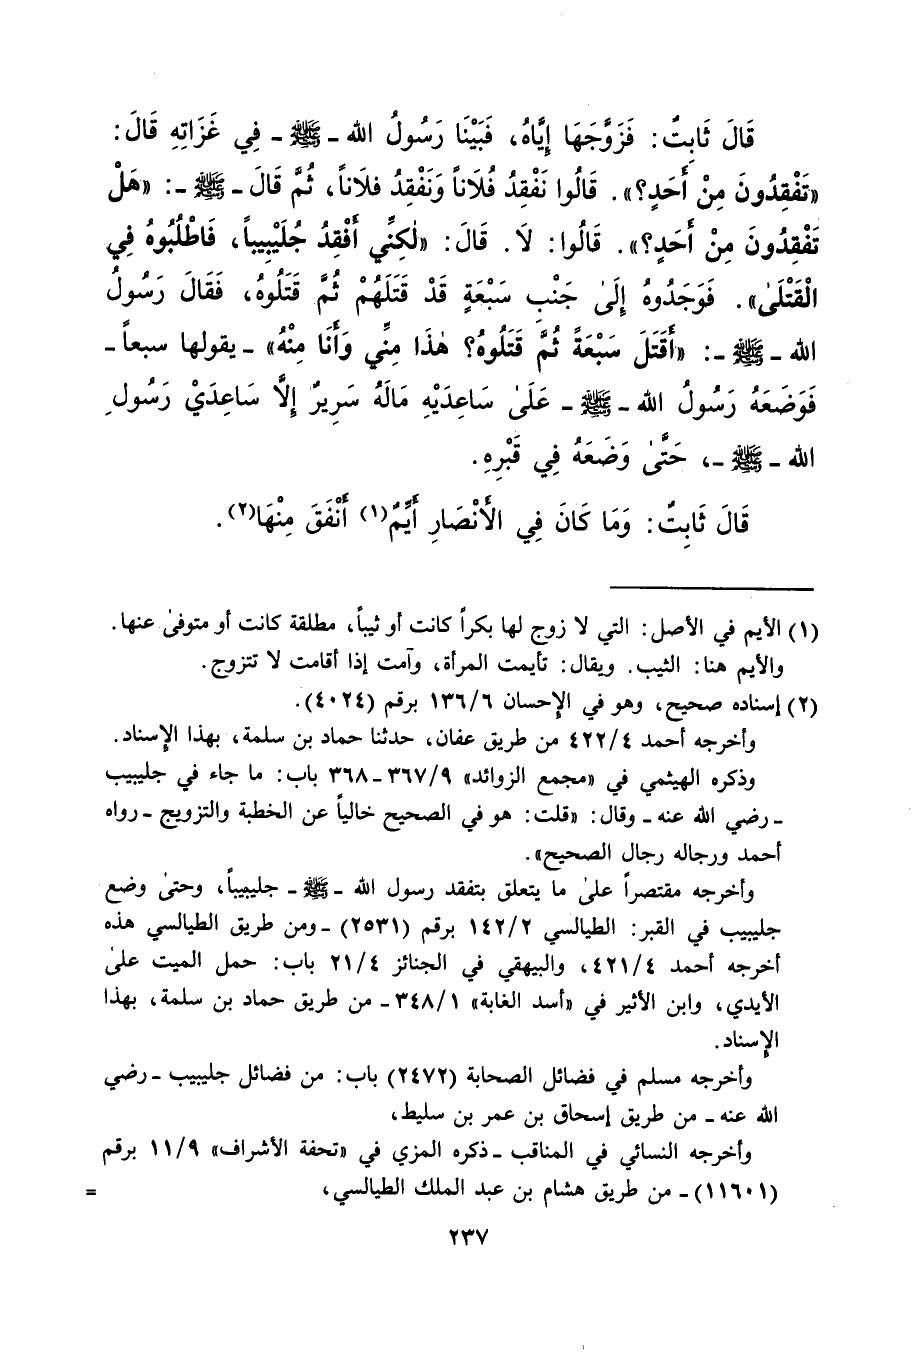 قَالَ ثَابِتٌ: فَزَوَّجَهَا إِيَّاهُ، فَبَيْنَا رَسُولُ الله ـ ﷺ ـ فِي غَزَاتِهِ قَالَ:
«تَفْقِدُونَ مِنْ أَحَدٍ؟». قَالُوا نَفْقِدُ فُلَاناً وَنَفْقِدُ فلَاناً، ثُمَّ قَالَ ـ ﷺ ـ: «هَلْ
تَفْقِدُونَ مِنْ أَحَدٍ؟». قَالُوا: لَا. قَالَ: «لٰكِنِّي أَفْقِدُ جُلَيْبِيباً، فَاطْلُبُوهُ فِي
الْقَتْلَىٰ». فَوَجَدُوهُ إِلَىٰ جَنْبِ سَبْعَةٍ قَدْ قَتَلَهُمْ ثُمَّ قَتَلُوهُ، فَقَالَ رَسُولُ
الله ـ ﷺ ـ: «أَقَتَلَ سَبْعَةً ثُمَّ قَتَلُوهُ؟ هٰذَا مِنِّي وَأَنَا مِنْهُ» ـ يقولها سبعاً ـ
فَوَضَعَهُ رَسُولُ الله ـ ﷺ ـ عَلَىٰ سَاعِدَيْهِ مَالَهُ سَرِيرٌ إِلَّا سَاعِدَيْ رَسُولِ
الله ـ ﷺ ـ، حَتَّىٰ وَضَعَهُ فِي قَبْرِهِ.
قَالَ ثَابِتٌ: وَمَا كَانَ فِي الْأَنْصَارِ أَيِّمٌ(١) أَنْفَقَ مِنْهَا(٢).
(١) الأيم في الأصل: التي لا زوج لها بكراً كانت أو ثيباً، مطلقة كانت أو متوفىٰ عنها.
والأيم هنا: الثيب. ويقال: تأيمت المرأة، وآمت إذا أقامت لا تتزوج.
(٢) إسناده صحيح، وهو في الإحسان ١٣٦/٦ برقم (٤٠٢٤).
وأخرجه أحمد ٤٢٢/٤ من طريق عفان، حدثنا حماد بن سلمة، بهذا الإسناد.
وذكره الهيثمي في «مجمع الزوائد» ٣٦٧/٩ ـ ٣٦٨ باب: ما جاء في جليبيب
ـ رضي الله عنه ـ وقال: «قلت: هو في الصحيح خالياً عن الخطبة والتزويج ـ رواه
أحمد ورجاله رجال الصحيح».
وأخرجه مقتصراً علىٰ ما يتعلق بتفقد رسول الله ـ ﷺ ـ جليبيباً، وحتىٰ وضع
جليبيب في القبر: الطيالسي ١٤٢/٢ برقم (٢٥٣١) ـ ومن طريق الطيالسي هذه
أخرجه أحمد ٤٢١/٤، والبيهقي في الجنائز ٢١/٤ باب: حمل الميت علىٰ
الأيدي، وابن الأثير في «أسد الغابة» ٣٤٨/١ ـ من طريق حماد بن سلمة، بهذا
الإسناد.
وأخرجه مسلم في فضائل الصحابة (٢٤٧٢) باب: من فضائل جليبيب ـ رضي
الله عنه ـ من طريق إسحاق بن عمر بن سليط،
وأخرجه النسائي في المناقب ـ ذكره المزي في «تحفة الأشراف» ١١/٩ برقم
(١١٦٠١) ـ من طريق هشام بن عبد الملك الطيالسي، =
٢٣٧